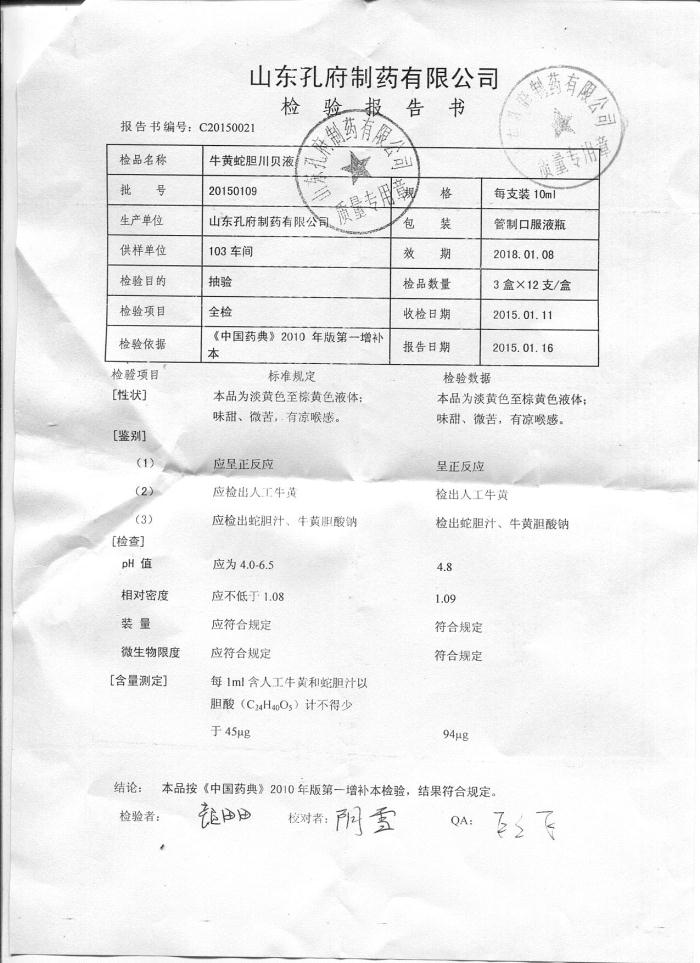 山东孔府制药有限公司
检 验 报 告 书
报告书编号：C20150021
检品名称 牛黄蛇胆川贝液
批 号 20150109 规 格 每支装 10ml
生产单位 山东孔府制药有限公司 包 装 管制口服液瓶
供样单位 103 车间 效 期 2018.01.08
检验目的 抽验 检品数量 3 盒×12 支/盒
检验项目 全检 收检日期 2015.01.11
检验依据 《中国药典》2010 年版第一增补本 报告日期 2015.01.16
山东孔府制药有限公司
质量专用章
制药有限公司
质量专用章
检验项目 标准规定 检验数据
[性状] 本品为淡黄色至棕黄色液体； 本品为淡黄色至棕黄色液体；
味甜、微苦，有凉喉感。 味甜、微苦，有凉喉感。
[鉴别]
（1） 应呈正反应 呈正反应
（2） 应检出人工牛黄 检出人工牛黄
（3） 应检出蛇胆汁、牛黄胆酸钠 检出蛇胆汁、牛黄胆酸钠
[检查]
pH 值 应为 4.0-6.5 4.8
相对密度 应不低于 1.08 1.09
装 量 应符合规定 符合规定
微生物限度 应符合规定 符合规定
[含量测定] 每 1ml 含人工牛黄和蛇胆汁以
胆酸（C₂₄H₄₀O₅）计不得少
于 45μg 94μg
结论： 本品按《中国药典》2010 年版第一增补本检验，结果符合规定。
检验者： 校对者：阴雪 QA：